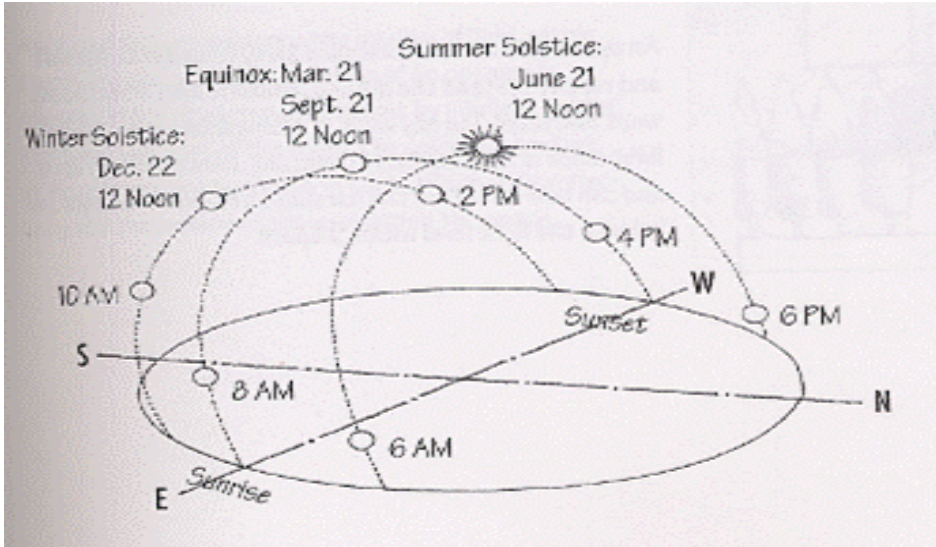 Summer Solstice:
June 21
12 Noon
Equinox: Mar. 21
Sept. 21
12 Noon
Winter Solstice:
Dec. 22
12 Noon
2 PM
4 PM
W
10 AM
Sunset
6 PM
S
8 AM
N
6 AM
E
Sunrise